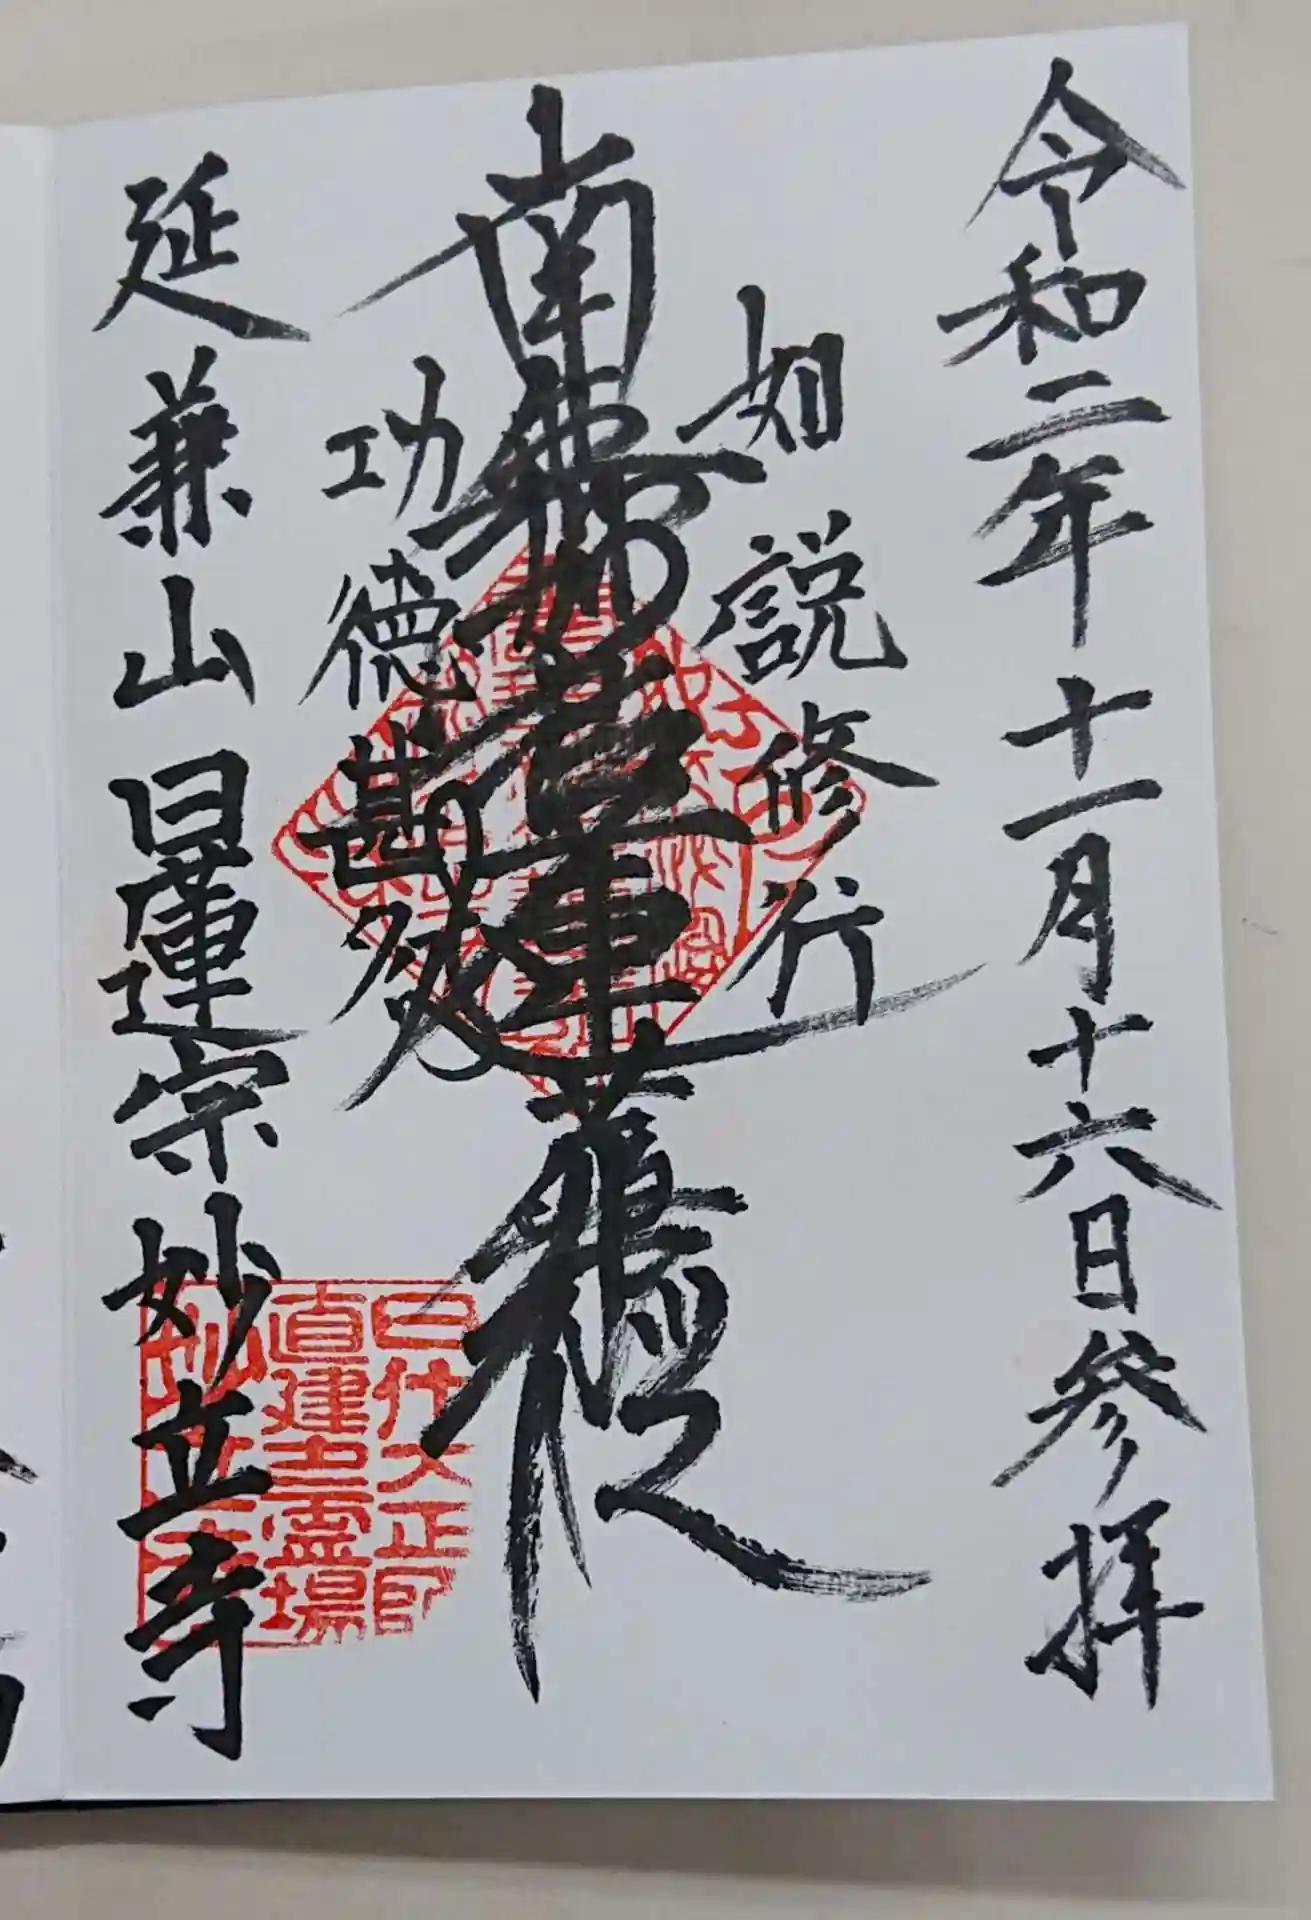 令和二年十一月十六日參拜
如説修行
南無妙法蓮華経
功徳甚多
延兼山日蓮宗妙立寺
日什大正師
直建之霊場
妙立寺